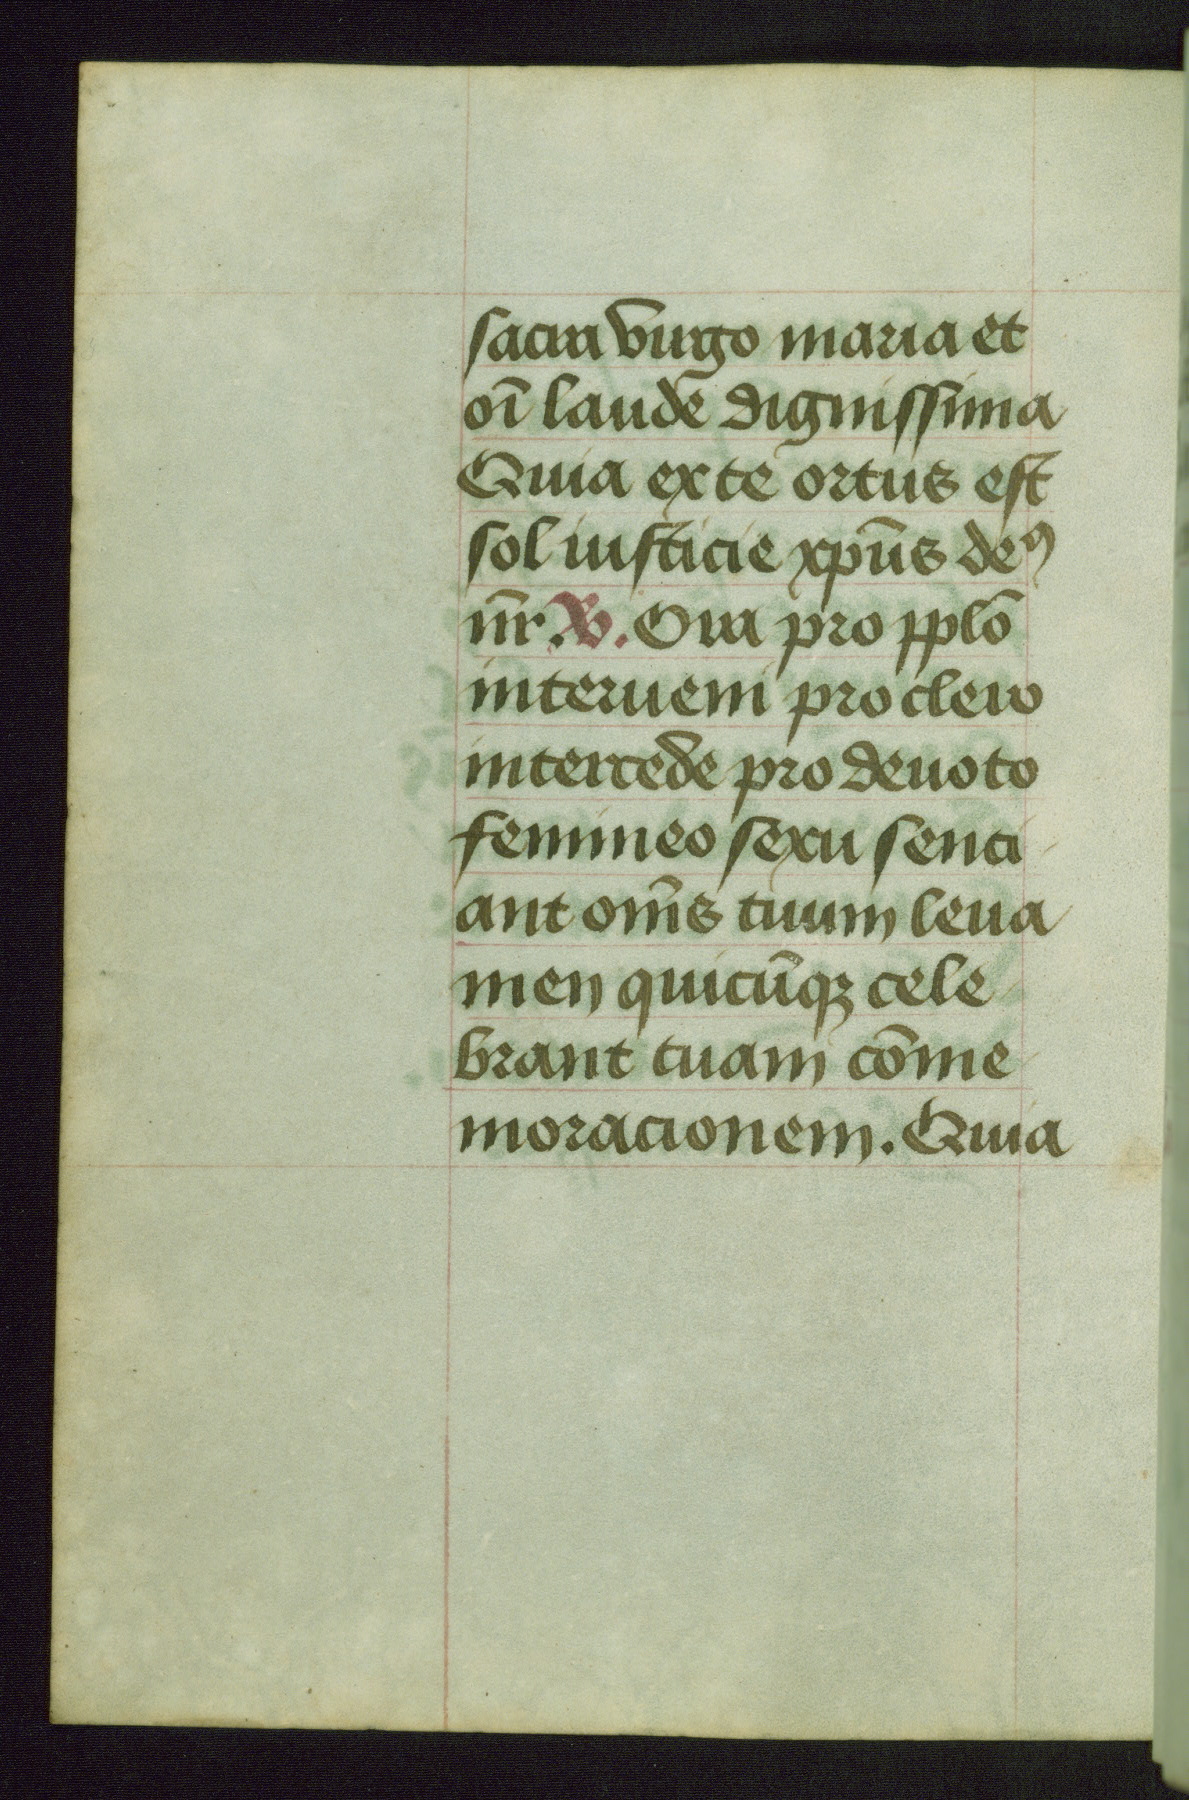 sacra virgo maria et
oī laude dignissima
Quia ex te ortus est
sol iusticie xp̄us deꝰ
nr̄. V. Ora pro pplō
interueni pro clero
intercede pro deuoto
femineo sexu senci
ant om̄s tuum leua
men quicūqꝫ cele
brant tuam cōme
moracionem. Quia